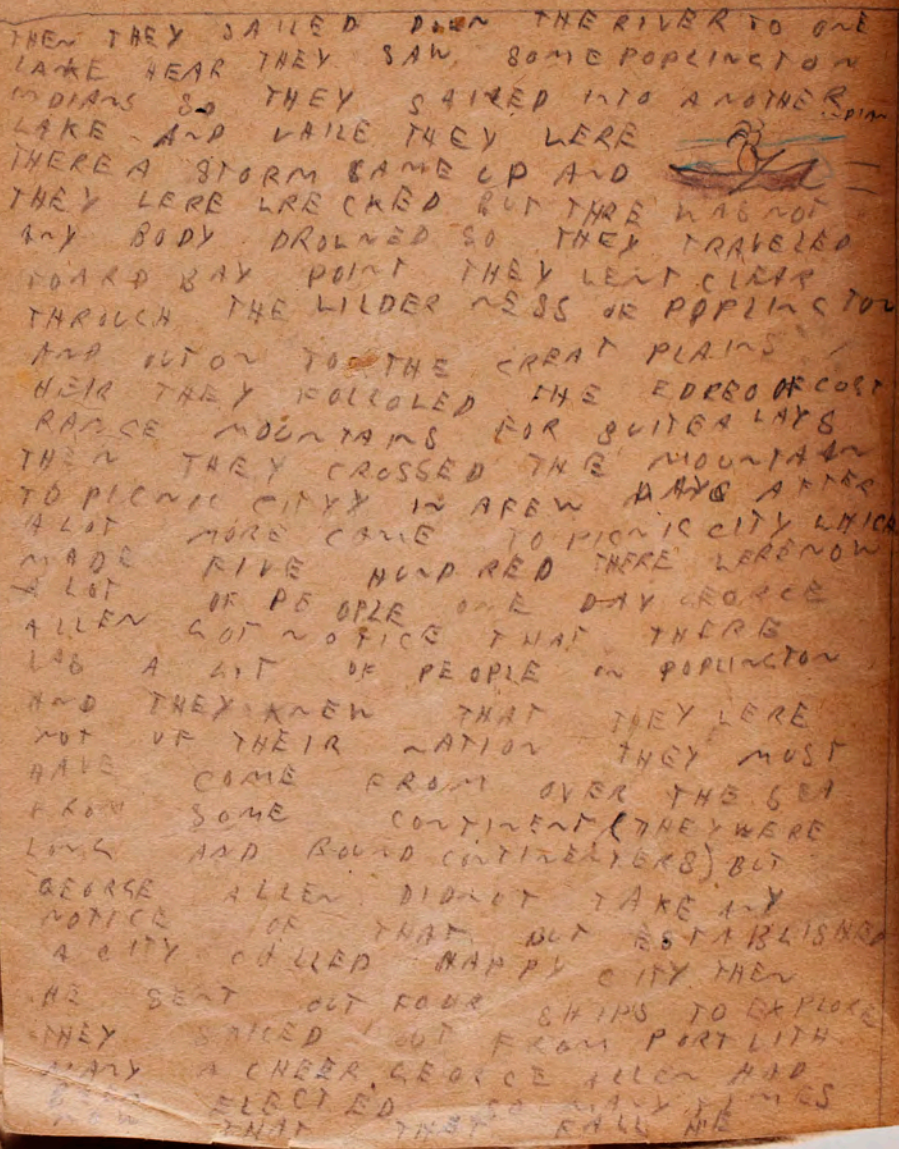 THEN THEY SAILED DOEN THE RIVER TO ONE
LAKE HEAR THEY SAW SOME POPLINGTON
INDIANS SO THEY SAILED INTO ANOTHER
INDIAN
LAKE AND VAILE THEY LERE
THERE A STORM CAME UP AND
THEY LERE LRECKED BUT THRE WAS NOT
ANY BODY DROLNED SO THEY TRAVELED
TOARD BAY POINT THEY LENT CLEAR
THROUGH THE LILDER NESS OF POPLINGTON
AND OUT ON TO THE GREAT PLAINS
HEIR THEY FOLLOLED THE OF COST
RANGE MOUNTAINS FOR QUITE A LAYS
THEN THEY CROSSED THE MOUNTAIN
TO PICNIC CITYY IN A FEW DAYS AFTER
A LOT MORE CAME TO PICNIC CITY WHICH
MADE FIVE HUNDRED THERE LERE NOW
A LOT OF PEOPLE ONE DAY GEORGE
ALLEN GOT NOTICE THAT THERE
LAS A LOT OF PEOPLE IN POPLINGTON
AND THEY KNEW THAT THEY LERE
NOT OF THEIR NATION THEY MUST
HAVE COME FROM OVER THE SEA
FROM SOME CONTINENT (THEY WERE
LONG AND BOUND CONTINENTERS) BUT
GEORGE ALLEN DIDNOT TAKE ANY
NOTICE OF THAT BUT ESTABLISHED
A CITY CALLED HAPPY CITY THEN
HE SENT OUT FOUR SHIPS TO EXPLORE
THEY SAILED OUT FROM PORT LITH
MANY A CHEER GEORGE ALLEN HAD
BEEN ELECTED SO MANY TIMES
NOW THAT THAT FALL HE